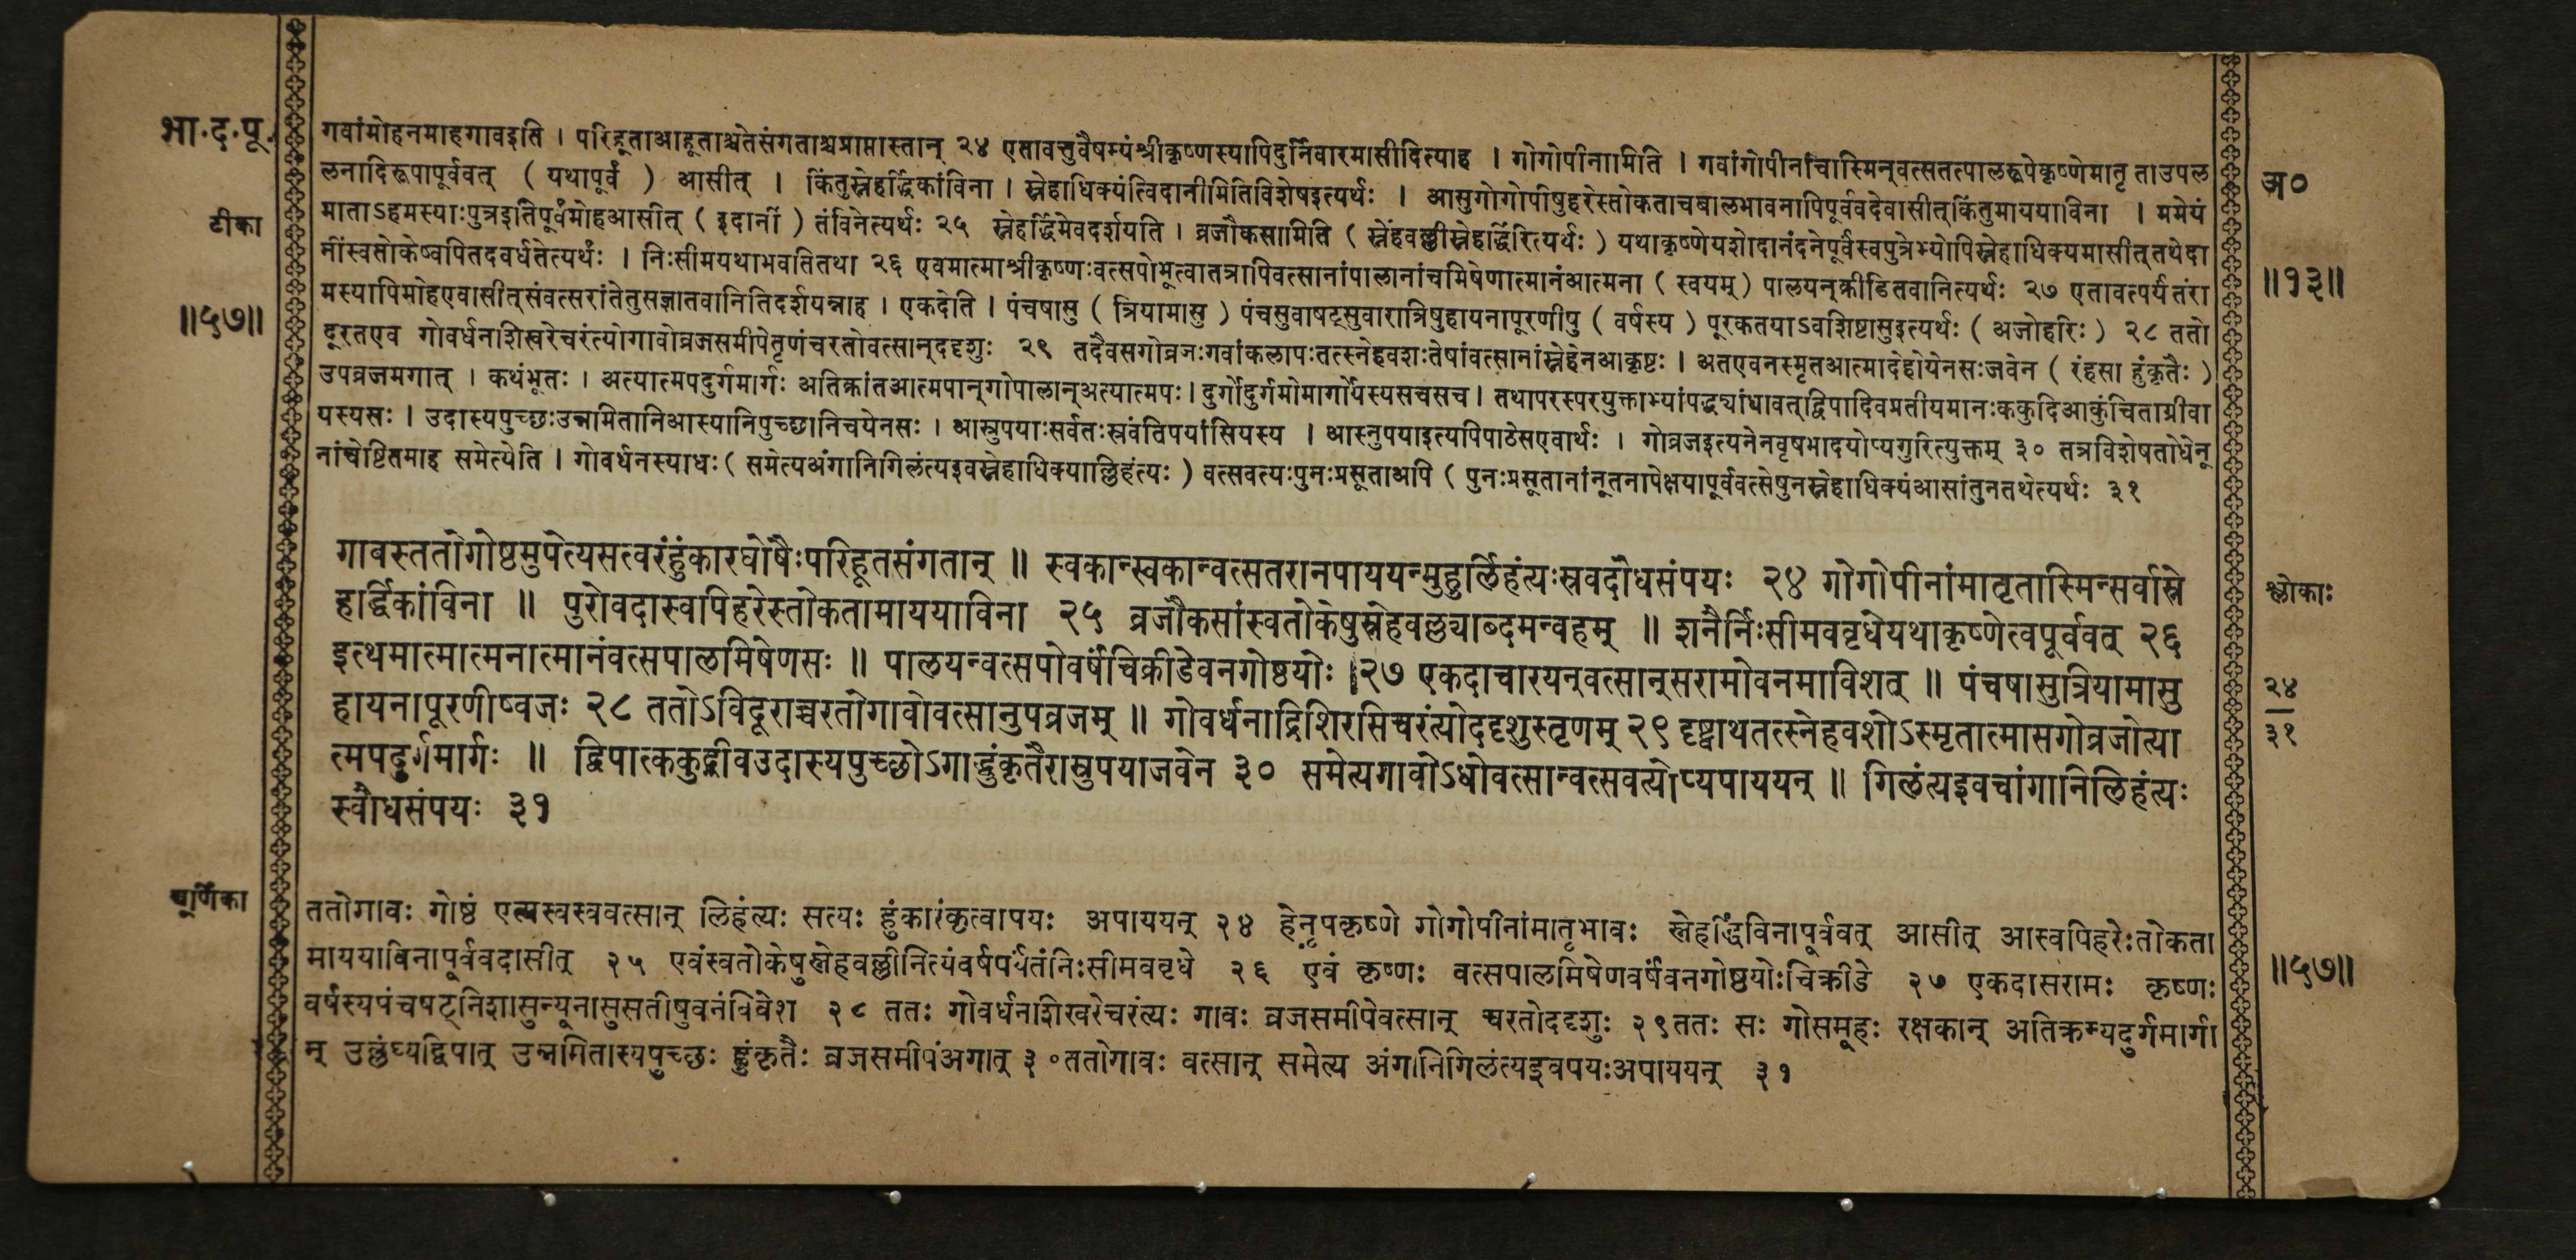 भा.द.पू.
टीका
॥५७॥
गवांमोहनमाहगावइति । परिहूताआहूताश्चतेसंगताश्चप्राप्तास्तान् २४ एतावत्तुवैषम्यंश्रीकृष्णस्यापिदुर्निवारमासीदित्याह । गोगोपीनामिति । गवांगोपीनांचास्मिन्वत्सतत्पालरूपेकृष्णेमातृ ताउपल
लनादिरूपापूर्ववत् ( यथापूर्वं ) आसीत् । किंतुस्नेहर्द्धिकांविना । स्नेहाधिक्यंत्विदानीमितिविशेषइत्यर्थः । आसुगोगोपीषुहरेस्तोकताचबालभावनापिपूर्ववदेवासीत्किंतुमाययाविना । ममेयं
माताऽहमस्याःपुत्रइतिपूर्वंमोहआसीत् ( इदानीं ) तंविनेत्यर्थः २५ स्नेहर्द्धिमेवदर्शयति । व्रजौकसामिति ( स्नेहवल्लीस्नेहर्द्धिरित्यर्थः ) यथाकृष्णेयशोदानंदनेपूर्वंस्वपुत्रेभ्योपिस्नेहाधिक्यमासीत्तथेदा
नींस्वतोकेष्वपितदवर्धतेत्यर्थः । निःसीमयथाभवतितथा २६ एवमात्माश्रीकृष्णःवत्सपोभूत्वातत्रापिवत्सानांपालानांचमिषेणात्मानंआत्मना ( स्वयम् ) पालयन्क्रीडितवानित्यर्थः २७ एतावत्पर्यंतंरा
मस्यापिमोहएवासीत्संवत्सरांतेतुसज्ञातवानितिदर्शयन्नाह । एकदेति । पंचषासु ( त्रियामासु ) पंचसुवाषट्सुवारात्रिषुहायनापूरणीषु ( वर्षस्य ) पूरकतयाऽवशिष्टासुइत्यर्थः ( अजोहरिः ) २८ ततो
दूरतएव गोवर्धनशिखरेचरंत्योगावोव्रजसमीपेतृणंचरतोवत्सान्ददृशुः २९ तदैवसगोव्रजःगवांकलापःतत्स्नेहवशःतेषांवत्सानांस्नेहेनआकृष्टः । अतएवनस्मृतआत्मादेहोयेनसःजवेन ( रंहसा हुंकृतैः )
उपव्रजमगात् । कथंभूतः । अत्यात्मपदुर्गमार्गः अतिक्रांतआत्मपान्गोपालान्अत्यात्मपः । दुर्गोदुर्गमोमार्गोयस्यसचसच । तथापरस्परयुक्ताभ्यांपद्भ्यांधावत्द्विपादिवप्रतीयमानःककुदिआकुंचिताग्रीवा
यस्यसः । उदास्यपुच्छःउन्नमितानिआस्यानिपुच्छानिचयेनसः । आस्रुपयाःसर्वतःस्रवंतिपयांसियस्य । आस्नुपयाइत्यपिपाठेसएवार्थः । गोव्रजइत्यनेनवृषभादयोप्यगुरित्युक्तम् ३० तत्रविशेषतोधेनू
नांचेष्टितमाह समेत्येति । गोवर्धनस्याधः ( समेत्यअंगानिगिलंत्यइवस्नेहाधिक्याल्लिहंत्यः ) वत्सवत्यःपुनःप्रसूताअपि ( पुनःप्रसूतानांनूतनापेक्षयापूर्ववत्सेपुनस्नेहाधिक्यंआसांतुनतथेत्यर्थः ३१
अ०
॥१३॥
गावस्ततोगोष्ठमुपेत्यसत्वरंहुंकारघोषैःपरिहूतसंगतान् ॥ स्वकान्स्वकान्वत्सतरानपाययन्मुहुर्लिहंत्यःस्रवदौधसंपयः २४ गोगोपीनांमातृतास्मिन्सर्वास्ने
हर्द्धिकांविना ॥ पुरोवदास्वापिहरेस्तोकतामाययाविना २५ व्रजौकसांस्वतोकेषुस्नेहवल्ल्याब्दमन्वहम् ॥ शनैर्निःसीमववृधेयथाकृष्णेत्वपूर्ववत् २६
इत्थमात्मात्मनात्मानंवत्सपालमिषेणसः ॥ पालयन्वत्सपोवर्षंचिक्रीडेवनगोष्ठयोः ।२७ एकदाचारयन्वत्सान्सरामोवनमाविशत् ॥ पंचषासुत्रियामासु
हायनापूरणीष्वजः २८ ततोऽविदूराच्चरतोगावोवत्सानुपव्रजम् ॥ गोवर्धनाद्रिशिरसिचरंत्योददृशुस्तृणम् २९ दृष्ट्वाथतत्स्नेहवशोऽस्मृतात्मासगोव्रजोत्या
त्मपदुर्गमार्गः ॥ द्विपात्ककुद्ग्रीवउदास्यपुच्छोऽगाद्धुंकृतैरास्रुपयाजवेन ३० समेत्यगावोऽधोवत्सान्वत्सवत्योप्यपाययन् ॥ गिलंत्यइवचांगानिलिहंत्यः
स्वौधसंपयः ३१
श्लोकाः
२४
३१
चूर्णिका
ततोगावः गोष्ठं एत्यस्वस्ववत्सान् लिहंत्यः सत्यः हुंकारंकृत्वापयः अपाययन् २४ हेनृपकृष्णे गोगोपीनांमातृभावः स्नेहर्द्धिंविनापूर्ववत् आसीत् आस्वपिहरेःतोकता
माययाविनापूर्ववदासीत् २५ एवंस्वतोकेषुस्नेहवल्लीनित्यंवर्षपर्यंतंनिःसीमववृधे २६ एवं कृष्णः वत्सपालमिषेणवर्षंवनगोष्ठयोःचिक्रीडे २७ एकदासरामः कृष्णः
वर्षस्यपंचषट्निशासुन्यूनासुसतीषुवनंविवेश २८ ततः गोवर्धनशिखरेचरंत्यः गावः व्रजसमीपेवत्सान् चरतोददृशुः २९ततः सः गोसमूहः रक्षकान् अतिक्रम्यदुर्गमार्गा
न् उल्लंघ्यद्विपात् उन्नमितास्यपुच्छः हुंकृतैः व्रजसमीपंअगात् ३०ततोगावः वत्सान् समेत्य अंगानिगिलंत्यइवपयःअपाययन् ३१
॥५७॥